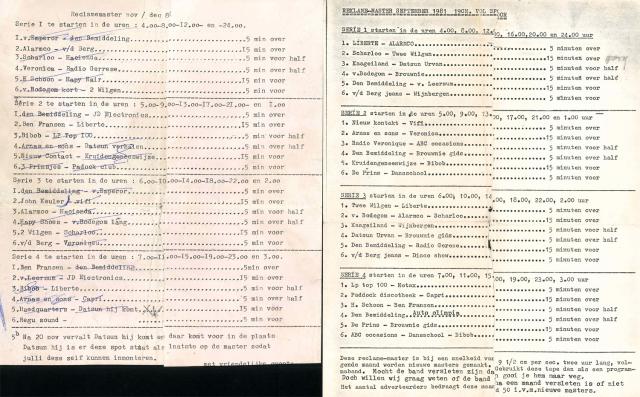 Reclamemaster nov / dec 8
Serie I te starten in de uren : 4.00-8.00-12.00- en -24.00.
I.v.Emperor - den Bemiddeling 5 min over
2.Alarmco - v/d Berg I5 min over
3.Scharloo - Hacienda 5 min voor half
4.Veronica - Radio Gerresse 5 min over half
5.H Schoon - Hapy Hair I5 min voor
6.v.Bodegom kort - 2 Wilgen 5 min voor
Serie 2 te starten in de uren : 5.00-9.00-I3.00-I7.00-2I.00- en I.00
I.den Bemiddeling - JD Electronics. 5 min over
2.Ben Fransen - Liberte. I5 min over
3.Bibob - LP Top I00 5 min voor half
4.Arnas en sons - Datsun 5 min over half
5.Nieuw Contact - Kruidengeneeswijze I5 min voor
6.3 Prinsjes - Paddock club. 5 min voor
Serie 3 te starten in de uren : 6.00-I0.00-I4.00-I8.00-22.00 en 2.00
I.den Bemiddeling - v.Emperor. 5 min over
2.John Keuler - vifit I5 min over
3.Alarmco - Hacienda. 5 min voor half
4.Hapy Shoes - v.Bodegom lang. 5 min over half
5.2 Wilgen - Scharloo. I5 min voor
6.v/d Berg - Veronique. 5 min voor
Serie 4 te starten in de uren : 7.00-II.00-I5.00-I9.00-23.00 en 3.00.
I.Ben Fransen - den Bemiddeling. 5 min over
2.v.Leersum - JD Electronics. I5 min over
3.Bibob - Liberte. 5 min voor half
4.Arnas en sons - Capri. 5 min over half
5.Headquarters - Datsun hij komt. I5 min voor
6.Regu sound - 5 min voor
Na 20 nov vervalt Datsun hij komt en daar komt voor in de plaats
Datsun hij is er deze spot staat als laatste op de master zodat
julli deze zelf kunnen inmonteren.
met vriendelijke groeten
RECLAME-MASTER SEPTEMBER 1981
SERIE 1 starten in de uren 4.00, 8.00, 12.00, 16.00,20.00 en 24.00 uur
1. LIBERTE - ALARMCO 5 minuten over
2. Scharloo - Twee Wilgen 15 minuten over
3. Kaageiland - Datsun Urvan 5 minuten voor half
4. v.Bodegom - Brownie 5 minuten over half
5. Den Bemiddeling - v. Leersum 15 minuten voor
6. v/d Berg jeans - Wijnbergen 5 minuten voor
SERIE 2 starten in de uren 5.00, 9.00, 13.00, 17.00, 21.00 en 1.00 uur
1. Nieuw kontakt - Vifit 5 minuten over
2. Arnas en sons - Veronica 15 minuten over
3. Radio Veronique - ABC occasions 5 minuten voor half
4. Den Bemiddeling - Brownie gids 5 minuten over half
5. Kruidengeneeswijze - Bibob 15 minuten voor
6. De Prins - Dansschool 5 minuten voor
SERIE 3 starten in de uren 6.00, 10.00, 14.00, 18.00, 22.00, 2.00 uur
1. Twee Wilgen - Liberte 5 minuten over
2. v. Bodegom - Alarmco - Scharloo 15 minuten over
3. Kaageiland - Wijnbergen 5 minuten voor half
4. Datsun Urvan - Brownie gids 5 minuten over half
5. Den Bemiddeling - Radio Gerese 15 minuten voor
6. v/d Berg jeans - Disco show 5 minuten voor
SERIE 4 starten in de uren 7.00, 11.00, 15.00, 19.00, 23.00, 3.00 uur
1. Lp top 100 - Rotax 5 minuten over
2. Paddock discotheek - Capri 15 minuten over
3. H. Schoon - Ben Fransen 5 minuten voor half
4. Den Bemiddeling Auto olimpia 5 minuten over half
5. De Prins - Brownie gids 15 minuten voor
6. ABC occasions - Dansschool - Bibob 5 minuten voor
Deze reclame-master is bij een snelheid van 9 1/2 cm per sec. twee uur lang, vol-
gende maand worden nieuwe masters gemaakt. Gebruikt deze tape dan als een program-
maband. Mocht de band versleten zijn dan gooi je hem maar weg.
Doch willen wij graag weten of de band na een maand versleten is of niet
Het aantal adverteerders bedraagt deze maand 50 i.v.m.nieuwe masters.